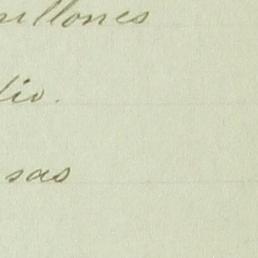 millones
dio.
sas